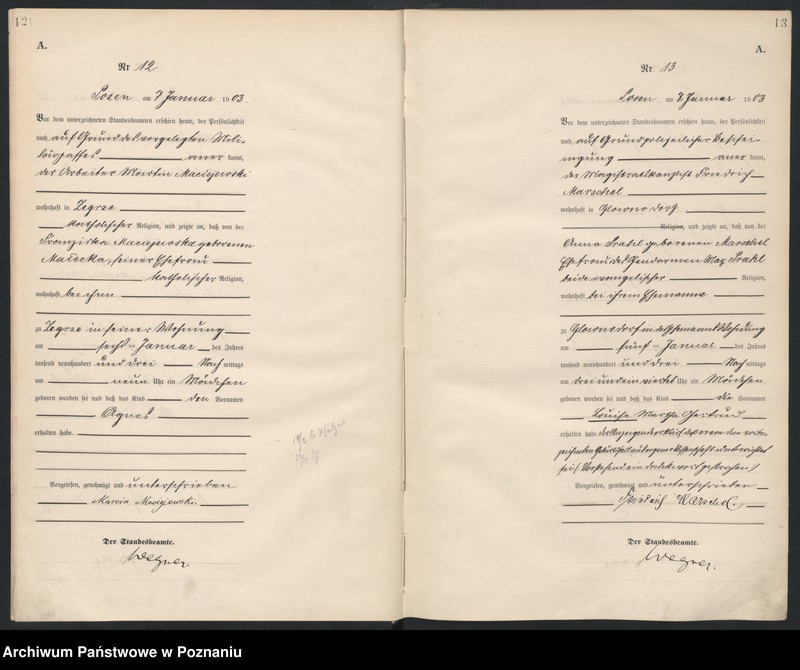 12
A.
Nr 12
Posen am 7 Januar 1903.
Vor dem unterzeichneten Standesbeamten erschien heute, der Persönlichkeit
nach auf Grund des vorgelegten Mili-
tärpasses anerkannt,
der Arbeiter Martin Maciejewski
wohnhaft in Zegrze
katholischer Religion, und zeigte an, daß von der
Franziska Maciejewska geborenen
Małecka, seiner Ehefrau
katholischer Religion,
wohnhaft bei ihm
zu Zegrze in seiner Wohnung
am sechsten Januar des Jahres
tausend neunhundert und drei Nachmittags
um neun Uhr ein Mädchen
geboren worden sei und daß das Kind den Vornamen
Agnes
erhalten habe.
Vorgelesen, genehmigt und unterschrieben
Marcin Maciejewski
Der Standesbeamte.
Wegner
13
A.
Nr 13
Posen am 8 Januar 1903
Vor dem unterzeichneten Standesbeamten erschien heute, der Persönlichkeit
nach auf Grund polizeilicher Beschei-
nigung anerkannt,
der Magistratskanzlist Friedrich
Marschel
wohnhaft in Glowno Dorf
Religion, und zeigte an, daß von der
Anna Prahl geborenen Marschel
Ehefrau des Gendarmen Max Prahl
beide evangelischer Religion,
wohnhaft bei ihrem Ehemanne
zu Glowno Dorf in des Ehemanns Wohnung
am fünften Januar des Jahres
tausend neunhundert und drei Nachmittags
um drei und ein viertel Uhr ein Mädchen
geboren worden sei und daß das Kind die Vornamen
Louise Martha Gertrud
erhalten habe. der Anzeigende erklärt daß er von dem vorbe-
zeichneten Geburtsfall aus eigener Wissenschaft unterrichtet
sei (Vorstehend ein Druckwort gestrichen)
Vorgelesen, genehmigt und unterschrieben
Friedrich Marschel.
Der Standesbeamte.
Wegner.
Archiwum Państwowe w Poznaniu